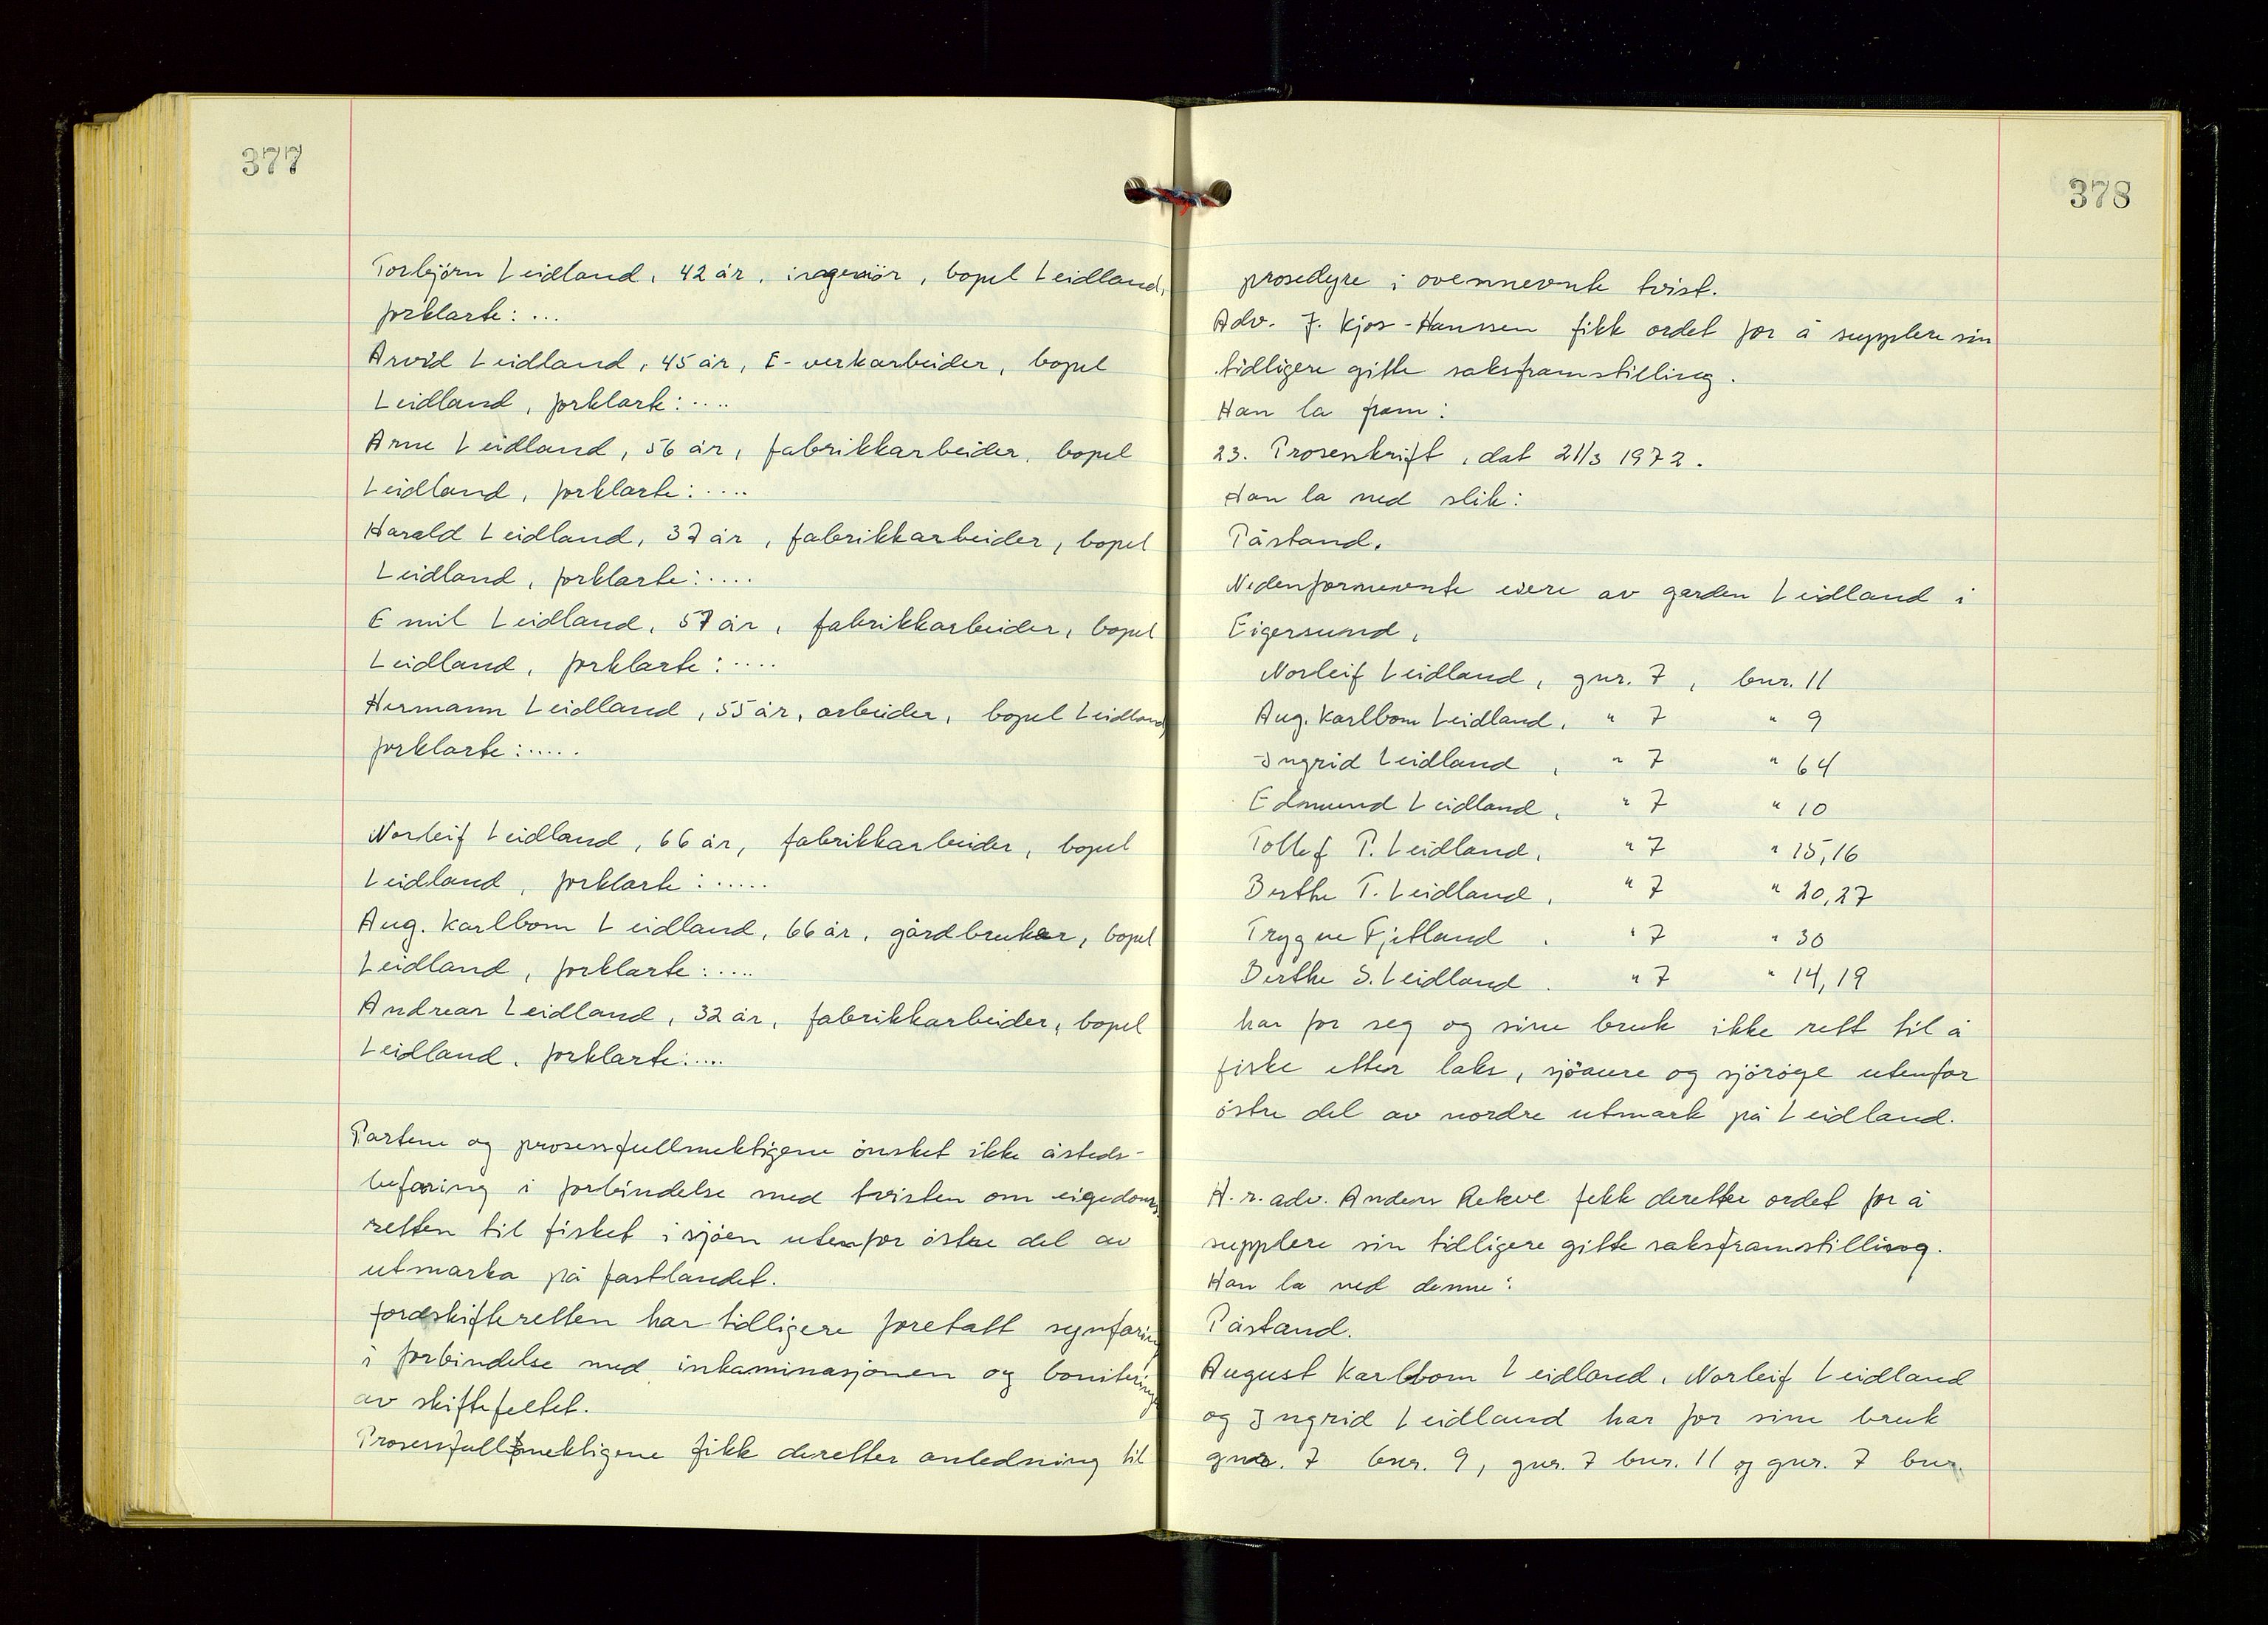 377
Torbjörn Leidland, 42 år, ingeniör, bopel Leidland,
forklarte: ...
Arvid Leidland, 45 år, E-verkarbeider, bopel
Leidland, forklarte: ....
Arne Leidland, 56 år, fabrikkarbeider, bopel
Leidland, forklarte: ....
Harald Leidland, 37 år, fabrikkarbeider, bopel
Leidland, forklarte: ....
Emil Leidland, 57 år, fabrikkarbeider, bopel
Leidland, forklarte: ....
Hermann Leidland, 55 år, arbeider, bopel Leidland
forklarte: .....
Norleif Leidland, 66 år, fabrikkarbeider, bopel
Leidland, forklarte: .....
Aug. Karlbom Leidland, 66 år, gårdbruker, bopel
Leidland, forklarte: ....
Andreas Leidland, 32 år, fabrikkarbeider, bopel
Leidland, forklarte: ....
Partene og prosessfullmektigene önsket ikke åsteds-
befaring i forbindelse med tvisten om eigedoms
retten til fisket i sjöen utenfor östre del av
utmarka på fastlandet.
Jordskifteretten har tidligere foretatt synfaring
i forbindelse med inkaminasjonen og bonitering
av skiftefeltet.
Prosessfullmektigene fikk deretter anledning til
378
prosedyre i ovennevnte tvist.
Adv. J. Kjos-Hanssen fikk ordet for å supplere sin
tidligere gitte saksframstilling.
Han la fram:
23. Prosesskrift, dat 21/3 1972.
Han la ned slik:
Påstand.
Nedenfornevnte eiere av garden Leidland i
Eigersund,
Norleif Leidland, gnr. 7, bnr. 11
Aug. Karlbom Leidland, " 7 " 9
Ingrid Leidland, " 7 " 64
Edmund Leidland, " 7 " 10
Tollef P. Leidland, " 7 " 15,16
Berthe T. Leidland, " 7 " 20,27
Trygve Fjetland, " 7 " 30
Berthe S. Leidland. " 7 " 14,19
har for seg og sine bruk ikke rett til å
fiske etter laks, sjöaure og sjöröye utenfor
östre del av nordre utmark på Leidland.
H.r.adv. Anders Rekve fekk deretter ordet for å
supplere sin tidligere gitte saksframstilling.
Han la ned denne:
Påstand.
August Karlbom Leidland, Norleif Leidland
og Ingrid Leidland har for sine bruk
gnr. 7 bnr. 9, gnr. 7 bnr. 11 og gnr. 7 bnr.